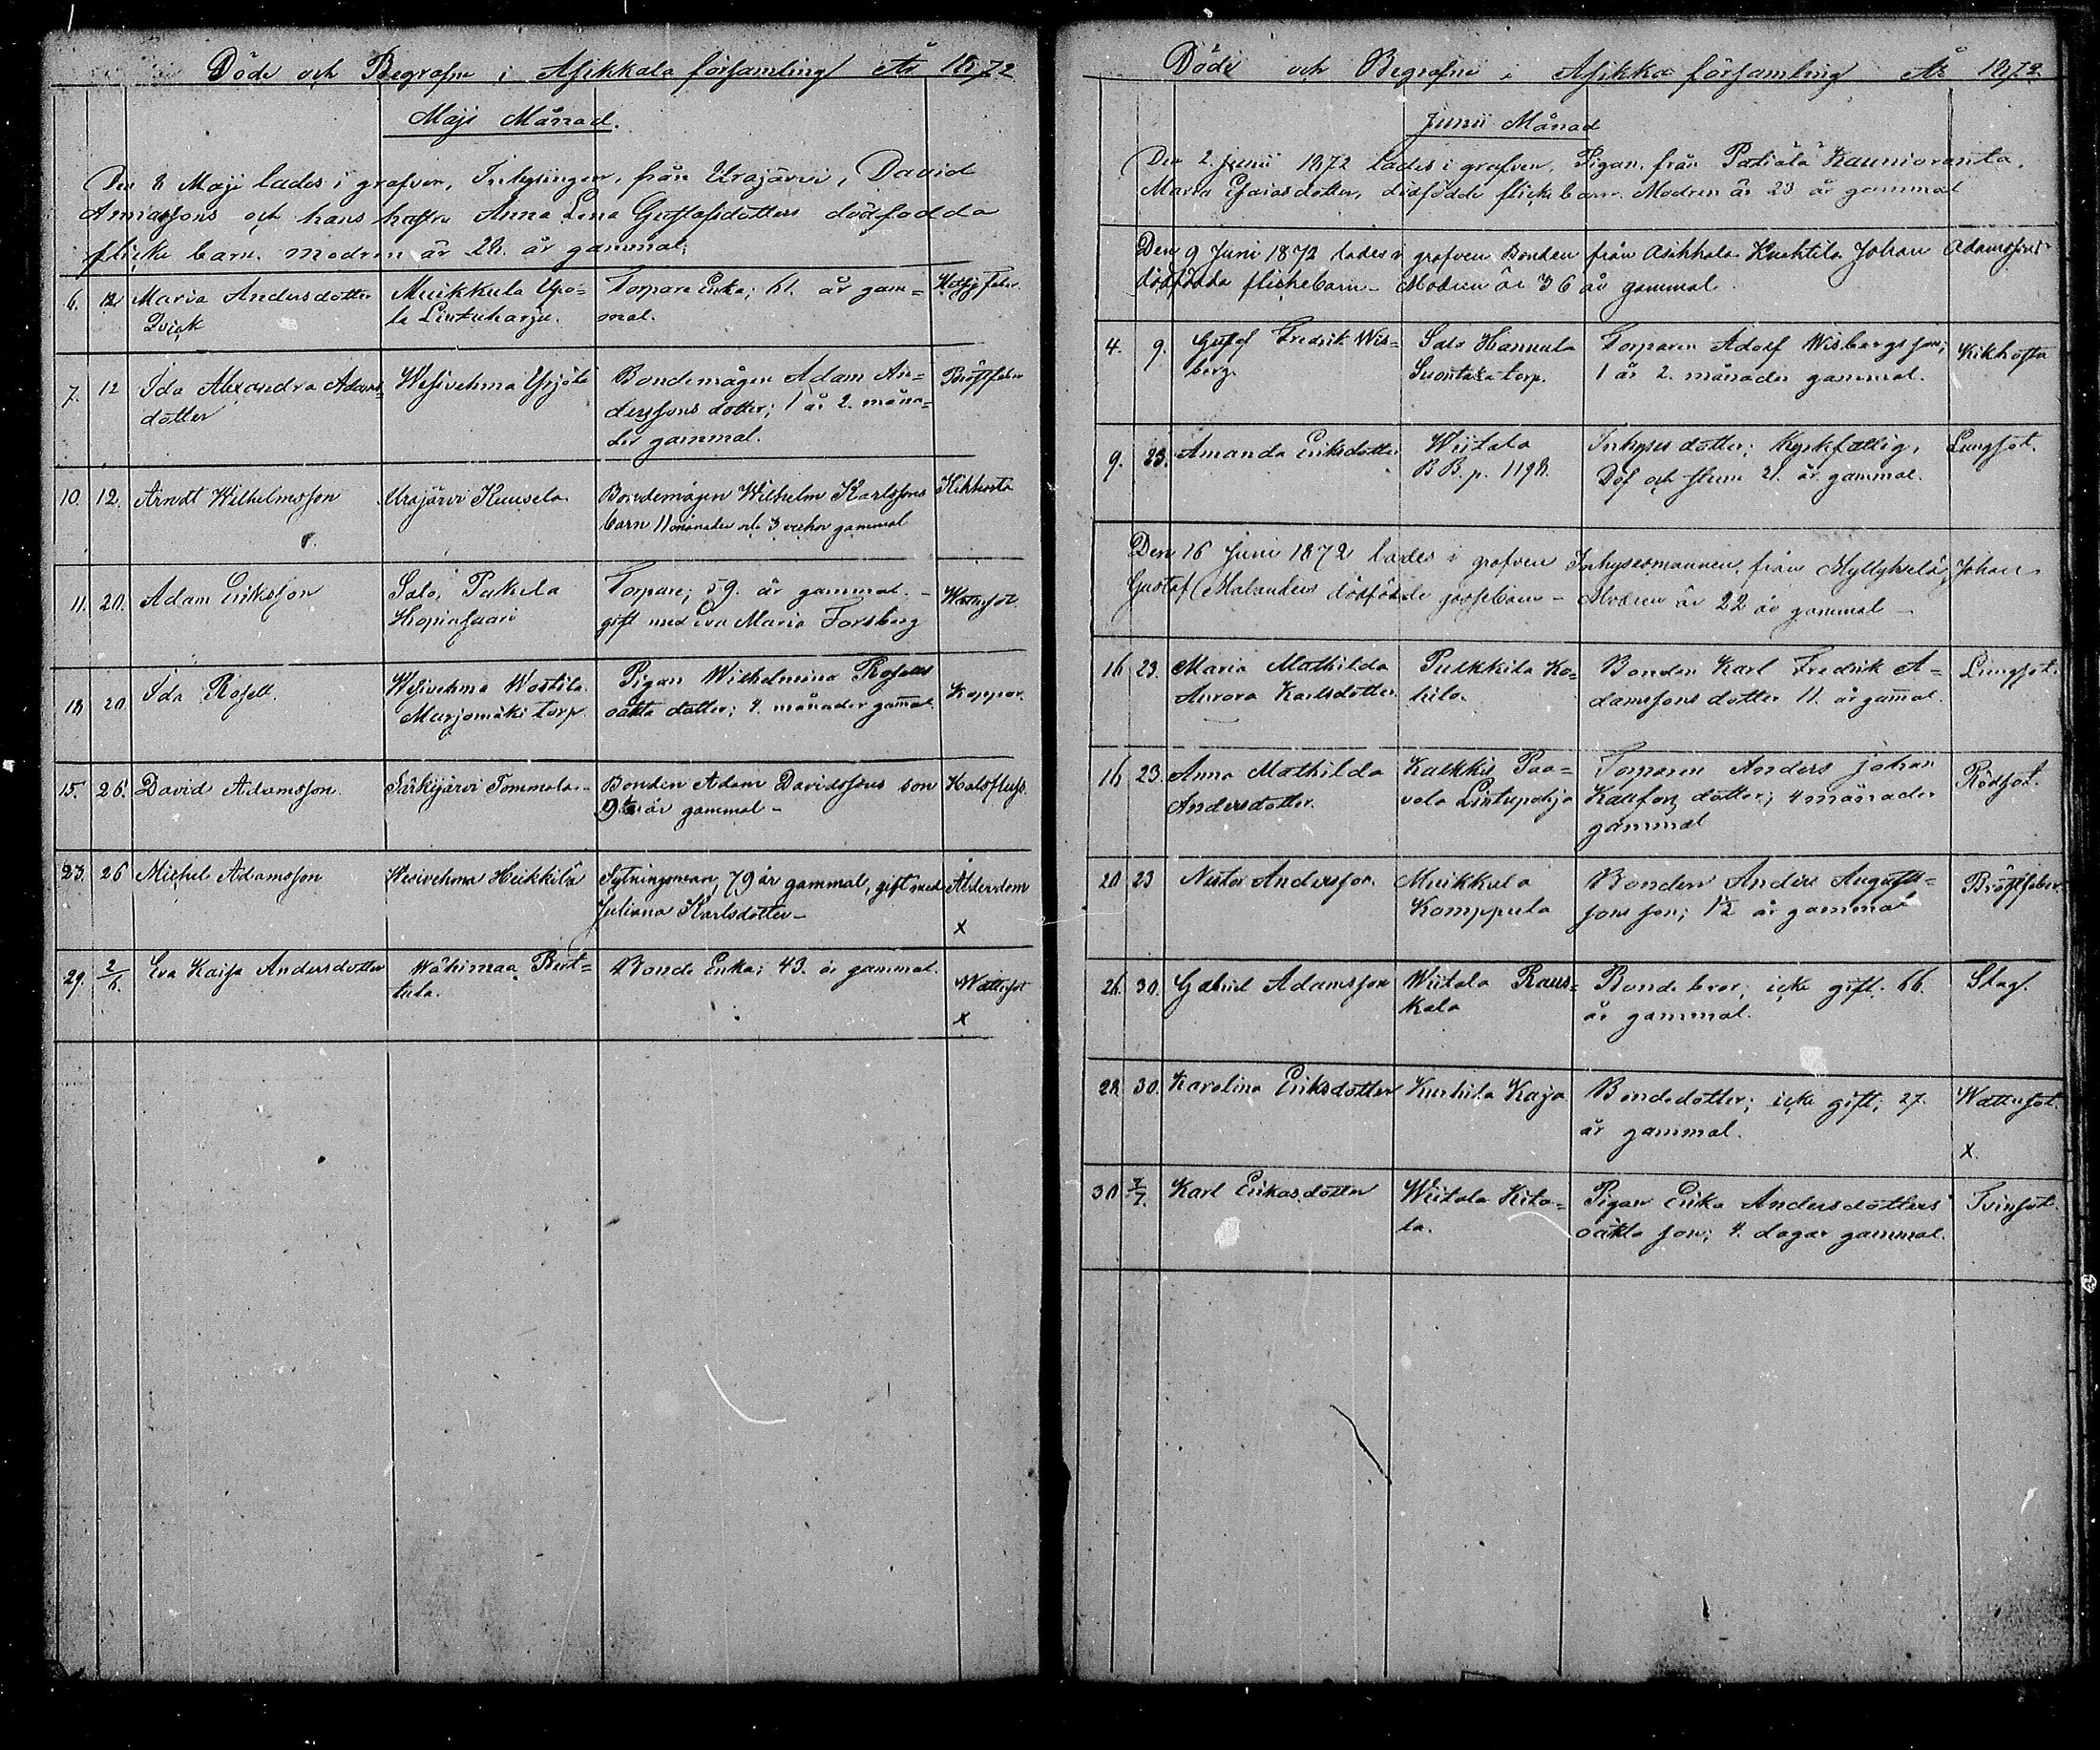 Döde och Begrafne i Asikkala församling År 1872
Maji Månad.
Den 2 Maji lades i grafven, Inhysingen, från Urajärvi, David
Anianssons och hans hustru Anna Lena Gustafsdotters dödfödda
flicke barn. modren är 28. år gammal.
6. 12 Maria Andersdotter Muikkula Upo= Torpare Enka; 61. år gam=
Qvick la Lintuharju. mal.
7. 12 Ida Alexandra Adams= Wesivehma Yrjölä Bondemågen Adam An= Bröstfeber
dotter derssons dotter; 1 år 2. måna=
der gammal.
10. 12. Arndt Wilhelmsson Urajärvi Kuusela Bondemågen Wilhelm Karlssons Kikhosta
barn 11 månader och 3 veckor gammal
11. 20. Adam Eriksson Salo, Pakela Torpare; 59. år gammal. - Wattusot
gift med Eva Maria Forsberg
18 20 Ida Rosell. Wesivehma Wostila Pigan Wilhelmina Rosells Koppor.
Marjomäki torp. oäkta dotter; 4. månader gammal.
15. 26. David Adamsson. Särkijärvi Tommola - Bonden Adam Davidssons son Halsfluss.
9 år gammal -
23. 26 Michel Adamsson Wesivehma Heikkilä Sytningsman, 79 år gammal, gift med Ålderdom
Juliana Karlsdotter - x
29. 2/6. Eva Kaisa Andersdotter Wähimaa Bert= Bonde Enka; 43. år gammal. Wattusot
tula. x
Döde och Begrafne i Asikka församling År 1872.
Junii Månad
Den 2. Junii 1872 lades i grafven, Pigan, från Patiala Kaunioranta,
Maria Esaiasdotter, dödfödde flicke barn. Modren är 23 år gammal
Den 9 Juni 1872 lades i grafven Bonden från Asikkala Kuhtila Johan Adamssons
dödfödda flickebarn - Modren är 36 år gammal
4. 9. Gustaf Fredrik Wis= Salo Hannula Torparen Adolf Wisbergs son; Kikhosta
berg. torp. 1 år 2. månader gammal.
9. 23. Amanda Eriksdotter Wiitala Inhyses dotter; Lungsot.
B B. p. 1198. Döf och stum 21. år gammal.
Den 16 Juni 1872 lades i grafven Inhysesmannen, från Myllykselä, Johan
Gustaf Malanders dödfödde gossebarn - Modren är 22 år gammal -
16 23. Maria Mathilda Pulkkila Ko= Bonden Karl Fredrik A= Lungsot.
Aurora Karlsdotter. tila. damssons dotter 11. år gammal.
16 23. Anna Mathilda Kalkkis Paa= Torparen Anders Johan Rödsot.
Andersdotter. vola Lintupohja dotter; 4 månader
gammal
20 23 Nestor Andersson. Muikkula Bonden Anders Augusts= Bröstfeber
Komppula sons son; 1½ år gammal
26. 30. Gabriel Adamsson Wiitala Raus= Bonde bror; icke gift. 66. Slag.
kala år gammal.
28. 30. Karolina Eriksdotter Kurhila Kaja Bondedotter; icke gift; 27. Wattusot.
år gammal. x.
30 7/7. Karl Erikasdotter Wiitala Kito= Pigan Erika Andersdotters Tvinsot.
la. oäkta son; 4. dagar gammal.